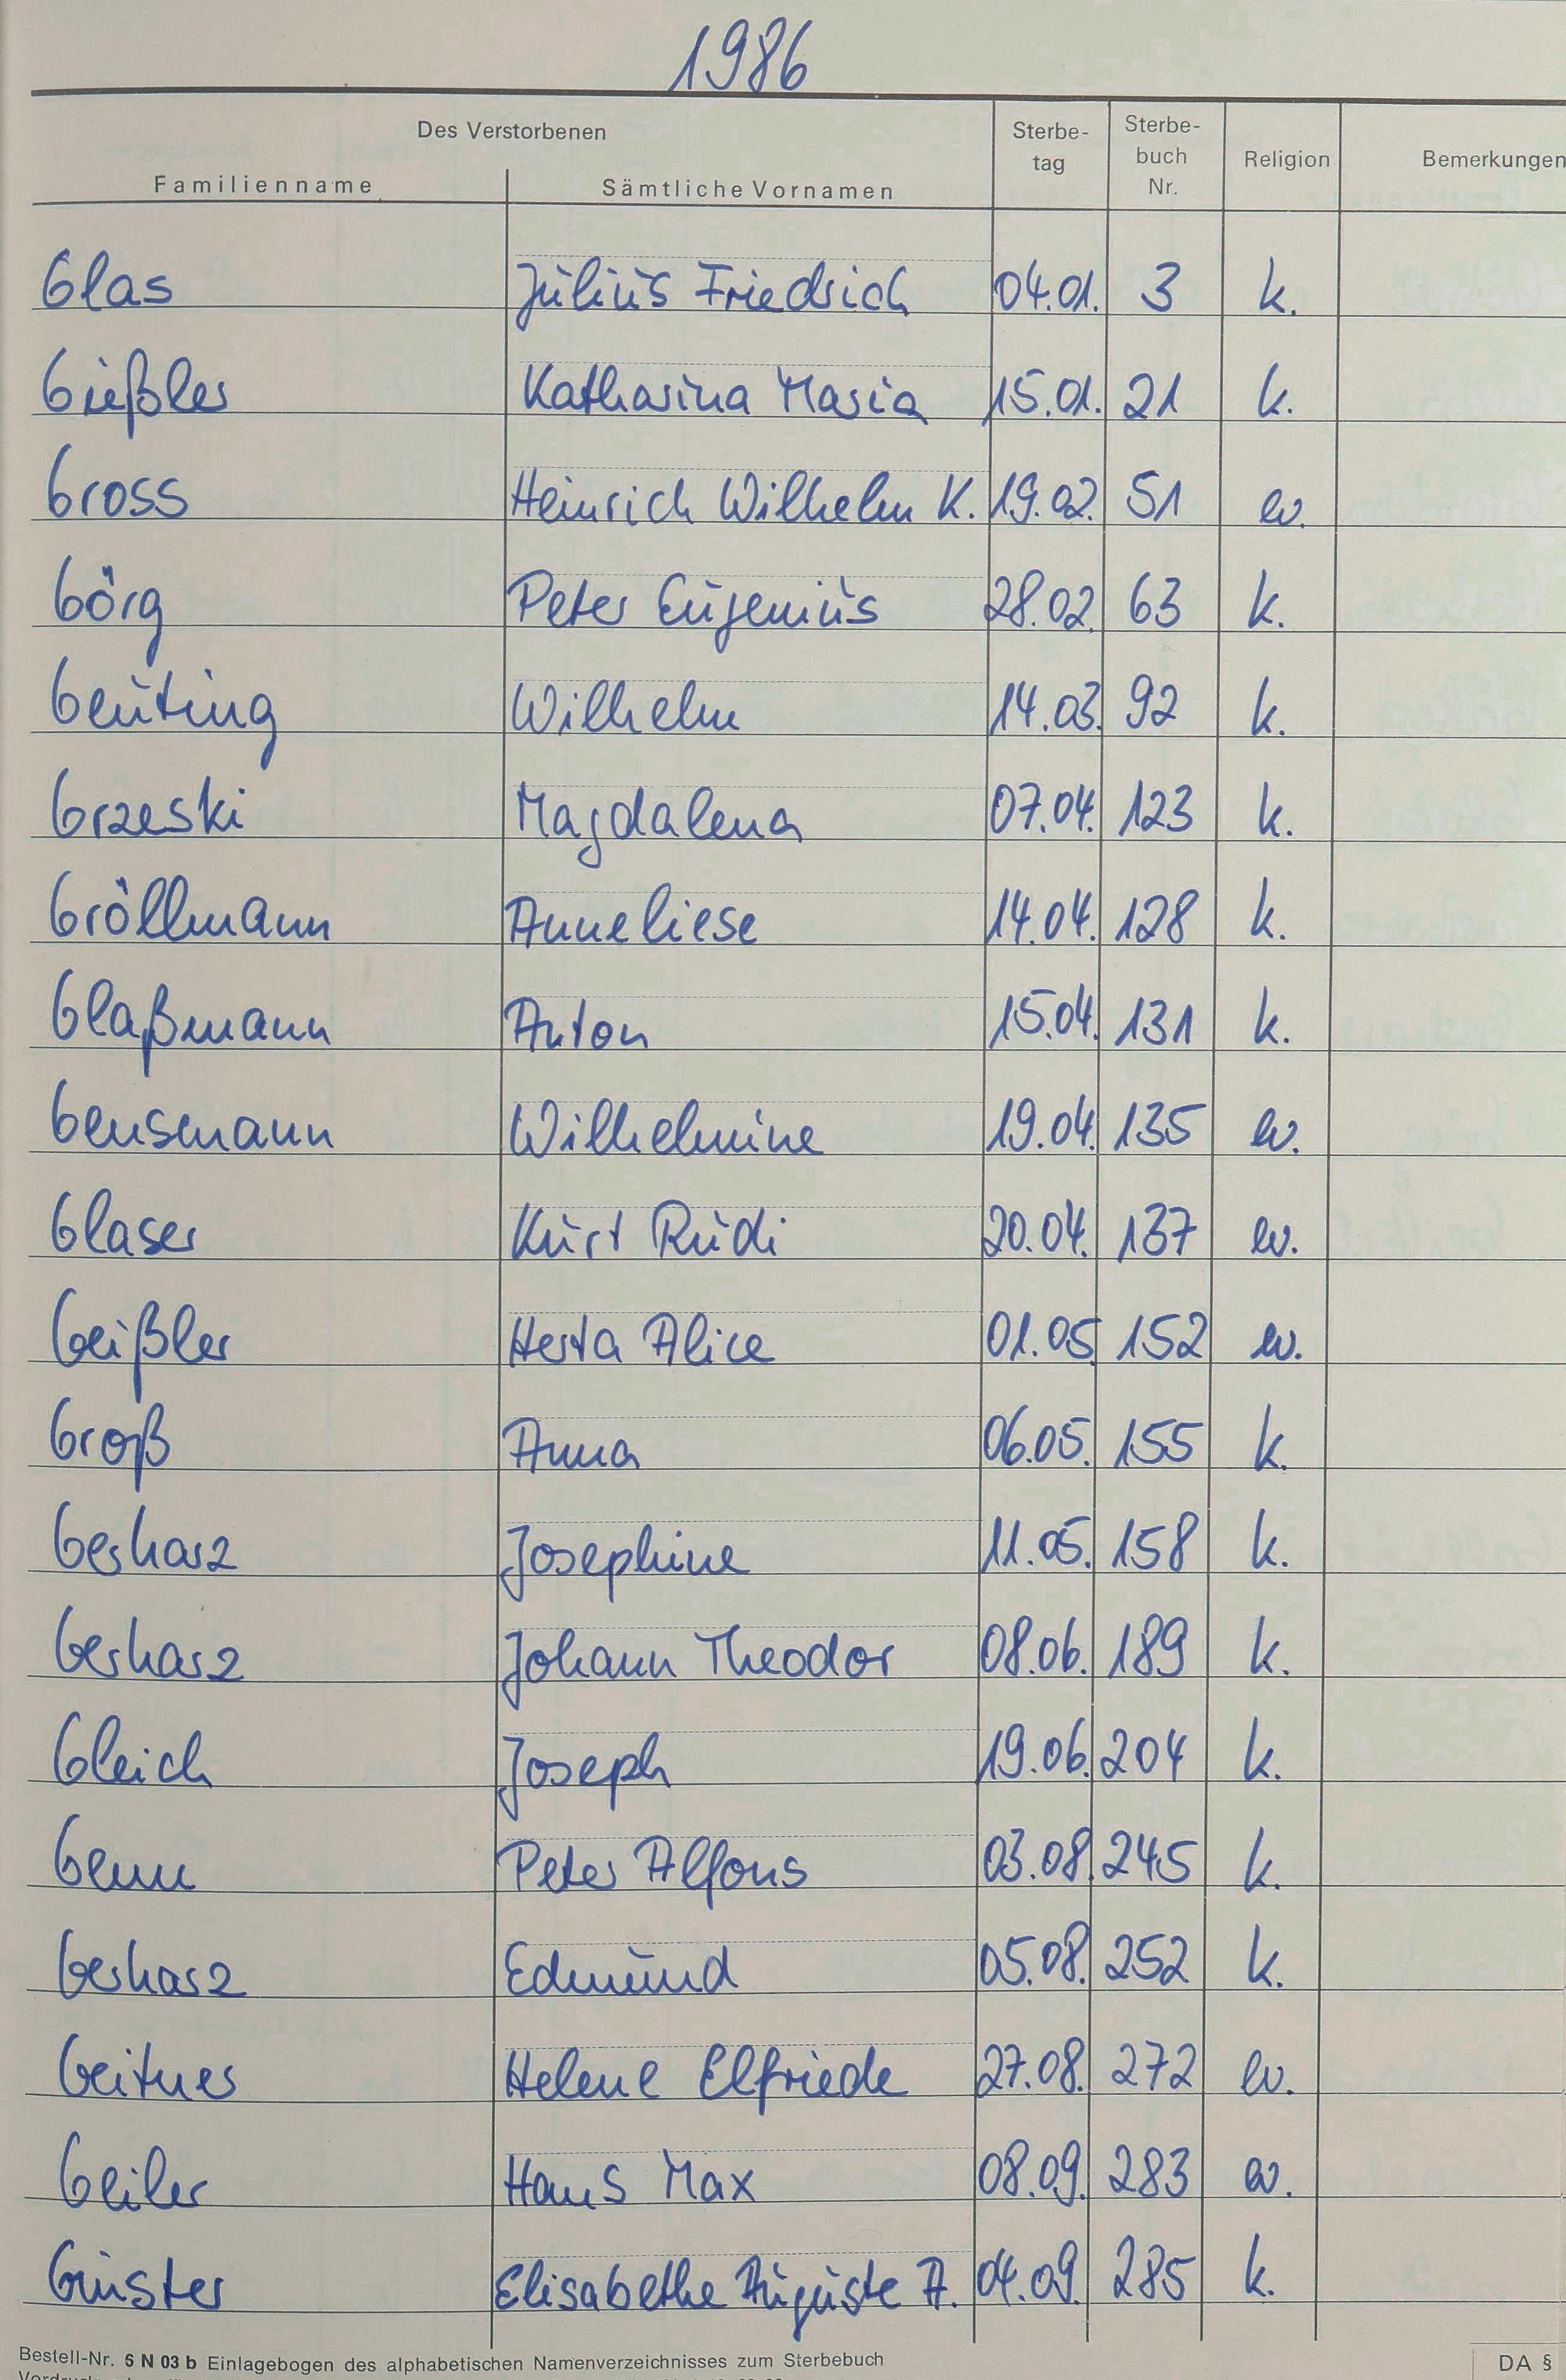 1986
Des Verstorbenen Sterbe- Sterbe- Religion Bemerkungen
tag buch
Familienname Sämtliche Vornamen Nr.
Glas Julius Friedrich 04.01. 3 k.
Gießler Katharina Maria 15.01. 21 k.
Gross Heinrich Wilhelm K. 19.02. 51 ev.
Görg Peter Eugenius 28.02. 63 k.
Geuting Wilhelm 14.03. 92 k.
Grzeski Magdalena 07.04. 123 k.
Gröllmann Anneliese 14.04. 128 k.
Glaßmann Anton 15.04. 131 k.
Gensmann Wilhelmine 19.04. 135 ev.
Glaser Kurt Rudi 20.04. 137 ev.
Geißler Herta Alice 01.05 152 ev.
Groß Anna 06.05. 155 k.
Gerharz Josephine 11.05. 158 k.
Gerharz Johann Theodor 08.06. 189 k.
Gleich Joseph 19.06. 204 k.
Genn Peter Alfons 03.08. 245 k.
Gerharz Edmund 05.08. 252 k.
Geitner Helene Elfriede 27.08. 272 ev.
Geiler Hans Max 08.09. 283 ev.
Ginster Elisabethe Auguste A. 04.09. 285 k.
Bestell-Nr. 6 N 03 b Einlagebogen des alphabetischen Namenverzeichnisses zum Sterbebuch DA §